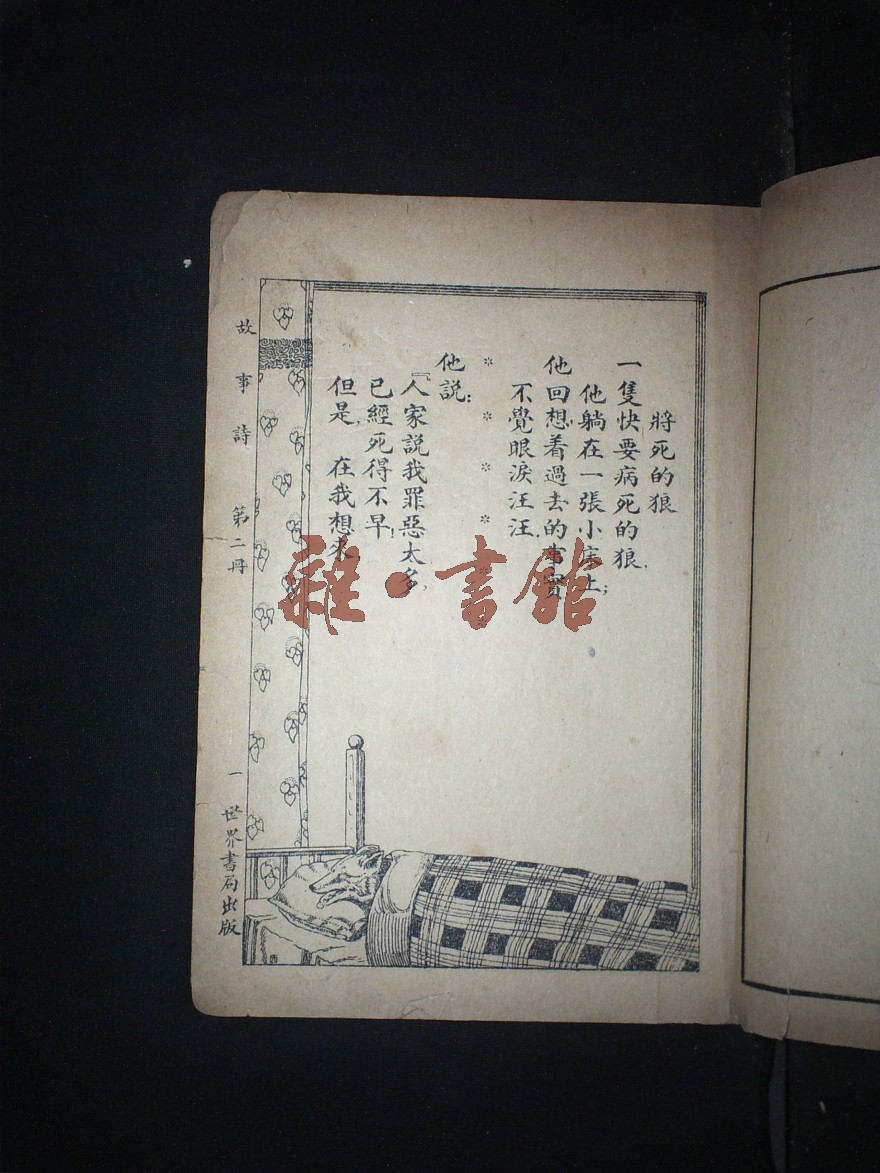 將死的狼
一隻快要病死的狼，
他躺在一張小床上；
他回想着過去的事實，
不覺眼淚汪汪．
＊＊＊＊
他說：
『人家說我罪惡太多，
已經死得不早！
但是，在我想來，
故事詩 第二冊
一
世界書局出版
雜·書館